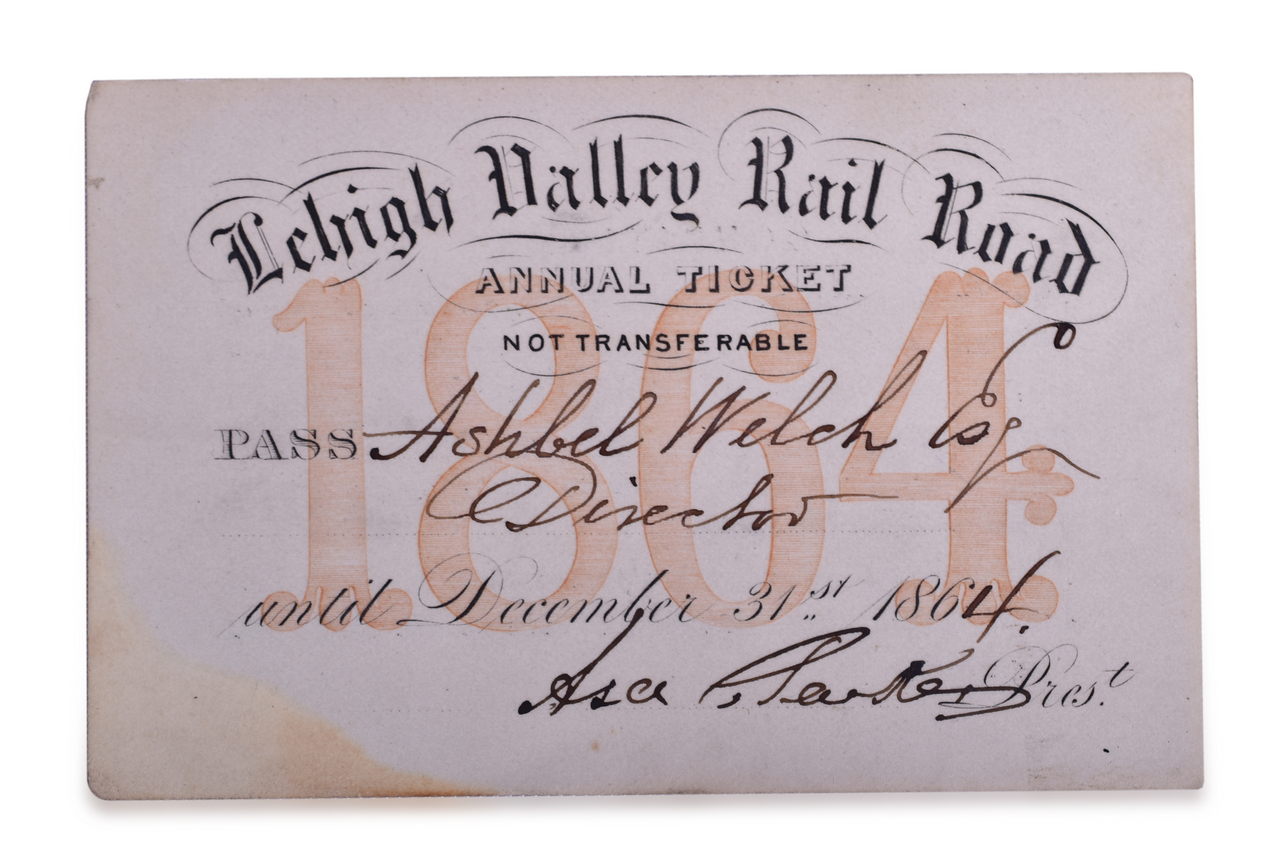 Lehigh Valley Rail Road
ANNUAL TICKET
1864
NOT TRANSFERABLE
PASS Ashbel Welch Esq
Director
until December 31st 1864.
Asa Packer Pres.t